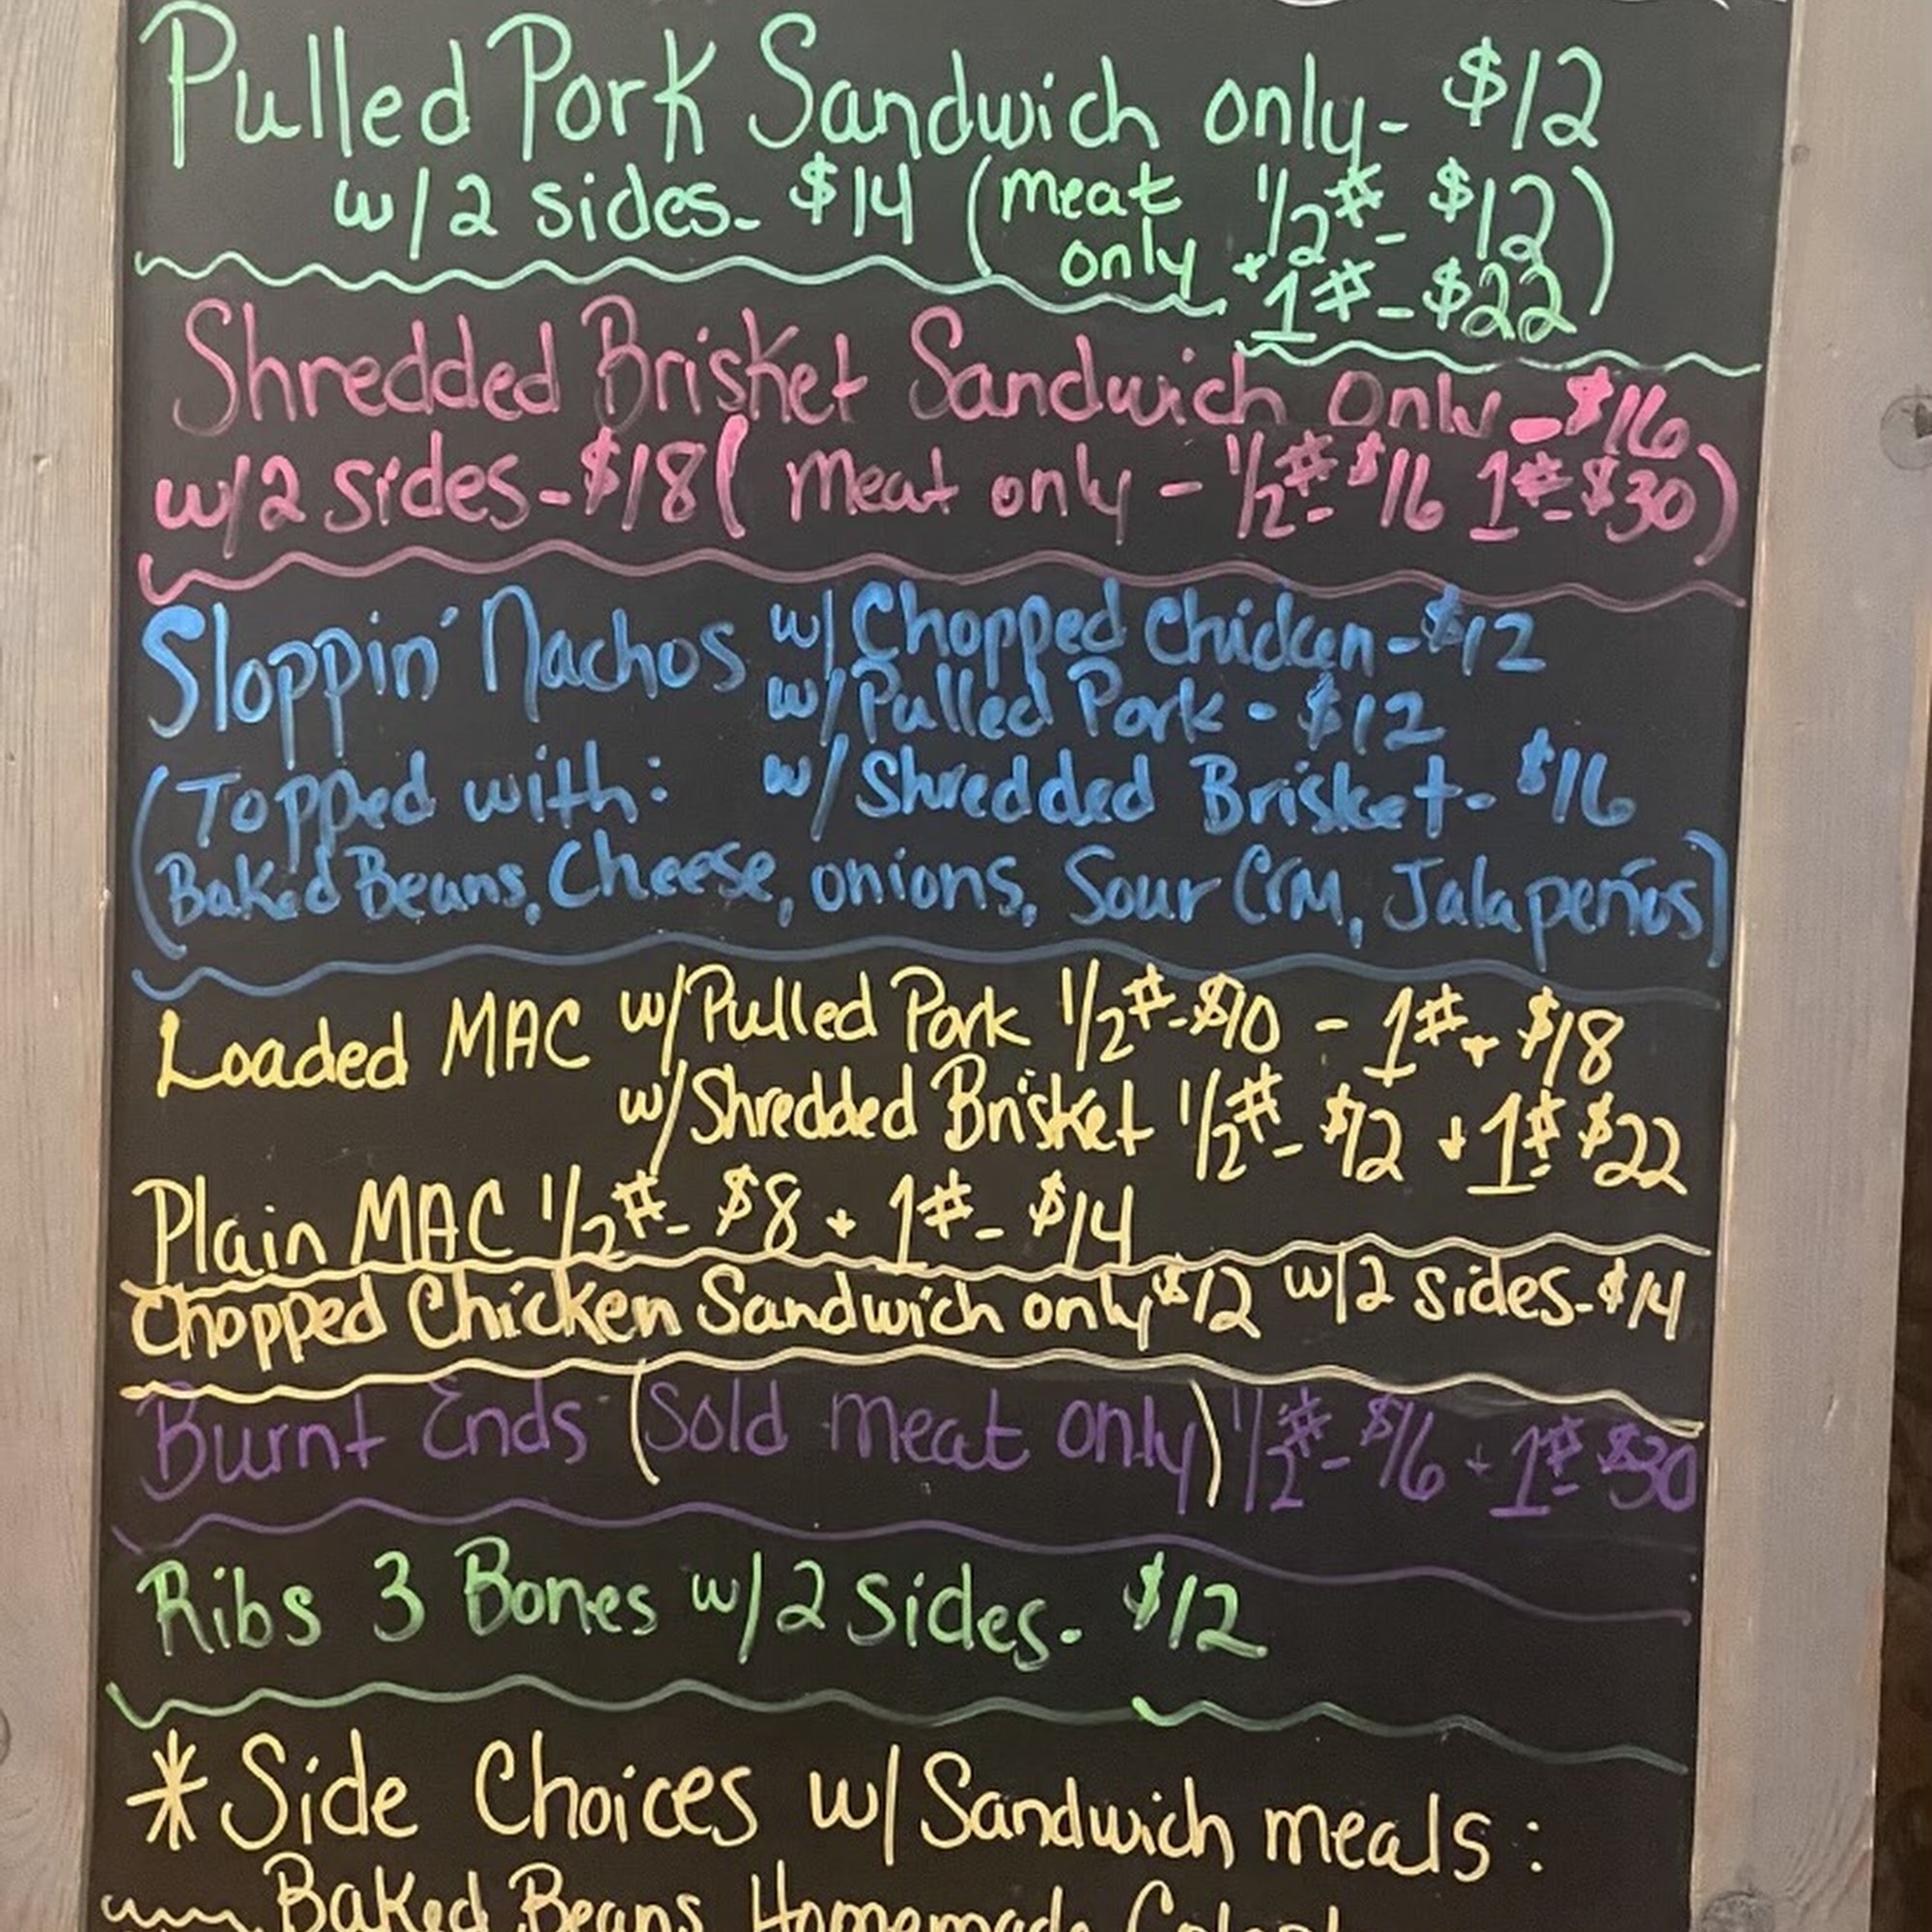 Pulled Pork Sandwich only- $12
w/2 sides- $14 (meat only 1/2#- $12)
+ 1#- $22
Shredded Brisket Sandwich only - $16
w/2 sides- $18 ( meat only - 1/2#- $16 1#- $30)
Sloppin' Nachos w/ Chopped Chicken - $12
w/ Pulled Pork - $12
(Topped with: w/ Shredded Brisket - $16
Baked Beans, Cheese, onions, Sour Crm, Jalapeños)
Loaded MAC w/Pulled Pork 1/2#- $10 - 1# + $18
w/Shredded Brisket 1/2#- $12 + 1#- $22
Plain MAC 1/2#- $8 + 1#- $14
Chopped Chicken Sandwich only $12 w/2 sides- $14
Burnt Ends (Sold meat only) 1/2#- $16 + 1#- $30
Ribs 3 Bones w/2 sides- $12
*Side Choices w/Sandwich meals:
Baked Beans, Homemade